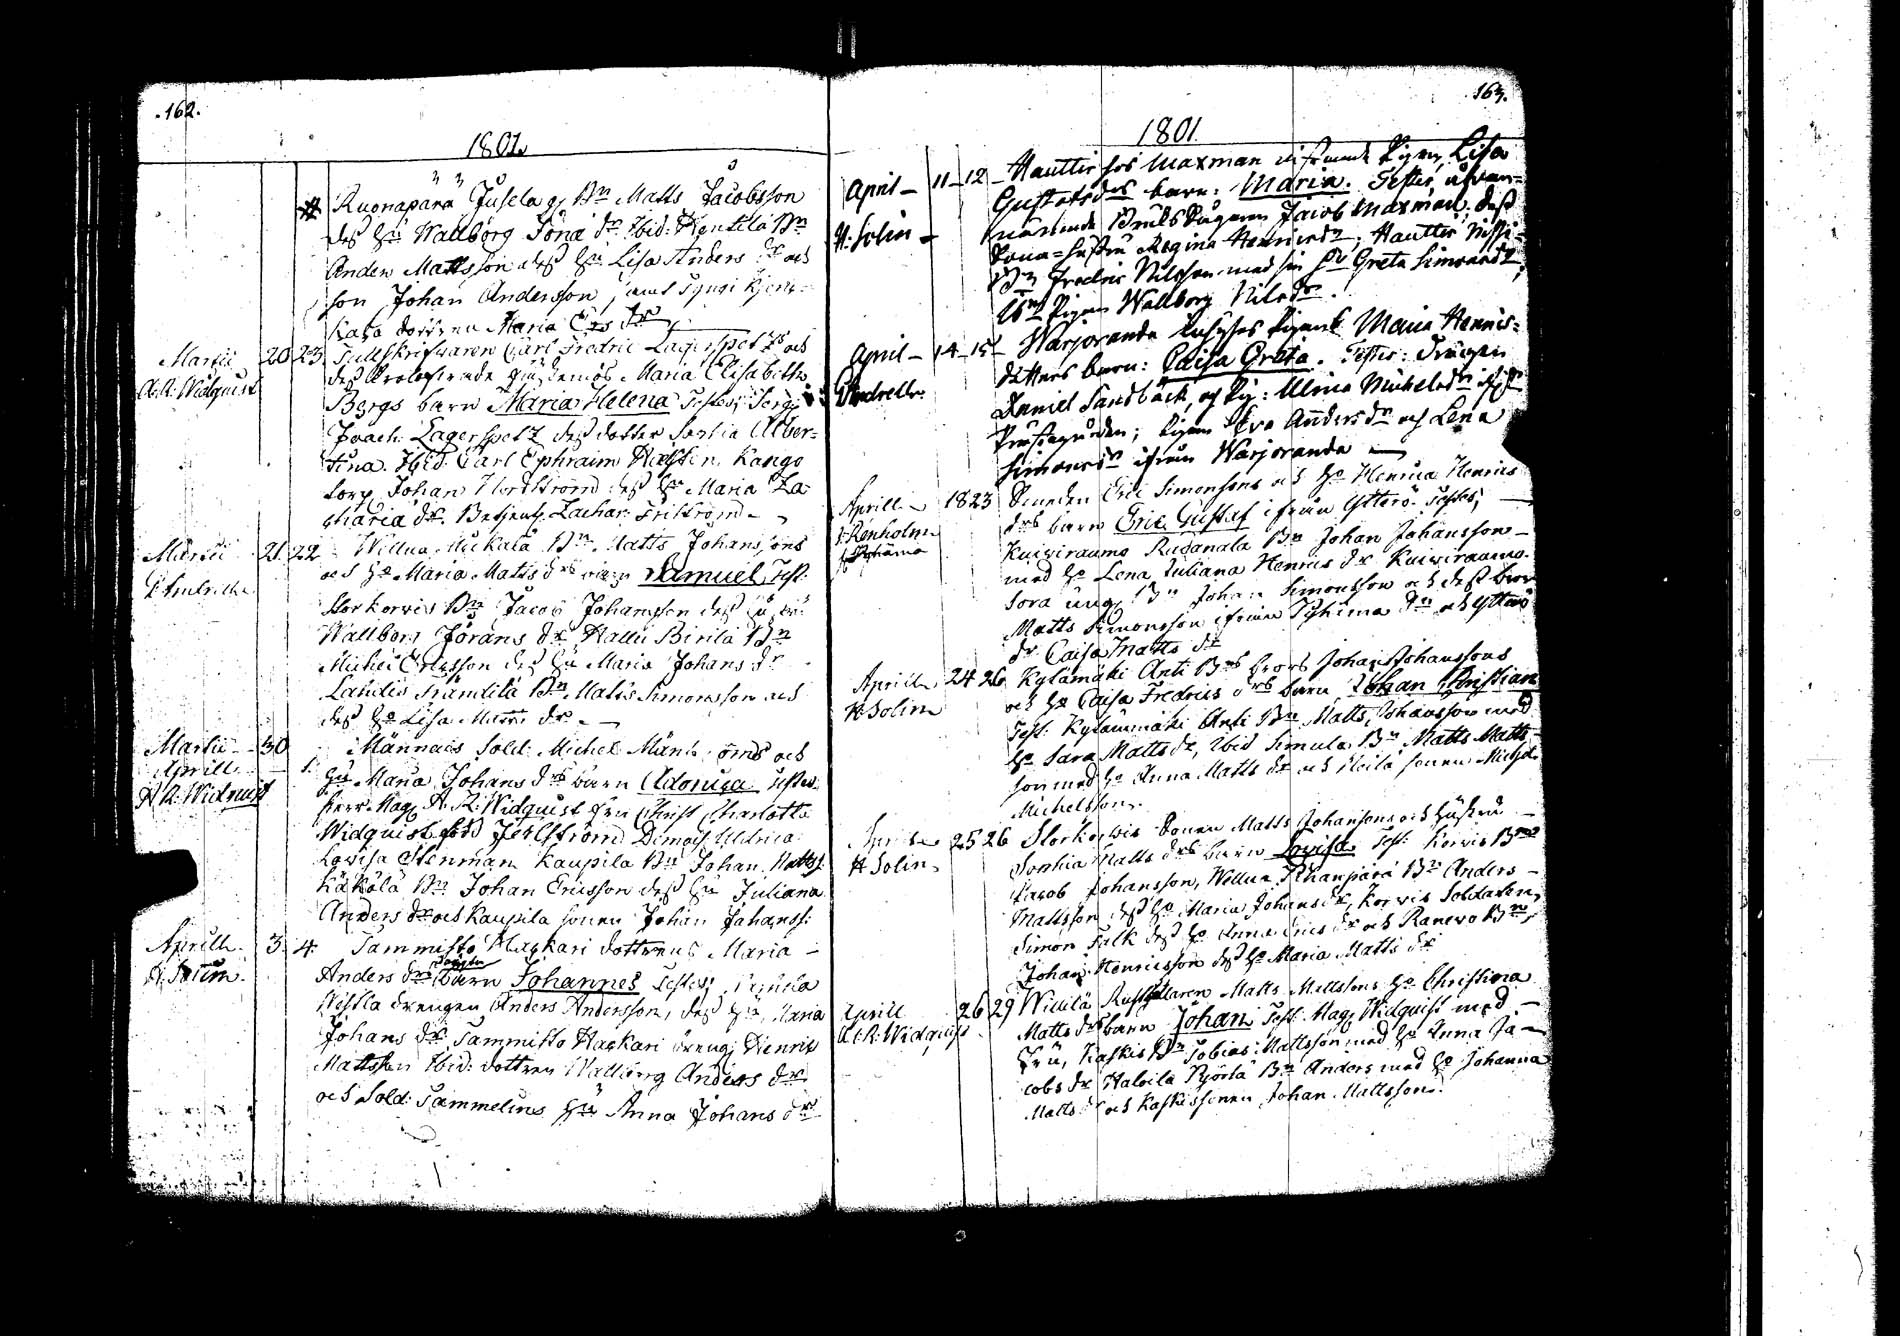 162.
1801.
# Ruonapärä Jusela g: Bn Matts Jacobsson
dess hu Wallborg Jöra dr Ibid: Hentilä Bn
Anders Mattsson dess hu Lisa Anders dr och
son Johan Andersson, samt
dottren Maria Ers dr
Martii 20 23 Fältskrifwaren Carl Fredric Lagerspetz och
A.R. Widquist dess Maria Elisabeths
Bergs barn Maria Helena Testes: Serg:
Joach: Lagerspetz dess dotter Sophia Alber-
tina. Ibid: Carl Ephraim Kango
Torp Johan Nordström dess hu Maria Za-
charia dr. Betjent: Zachar:
Martii 21. 22 Wellua Mickala Bn Matts Johanssons
och ho Maria Matts drs barn Samuel, Test:
Storkorvis Bn Jacob Johansson dess hustru
Wallborg Jörans dr Hallu Birilä Bn
Michel Ericsson dess hu Maria Johans dr
Laudis Främlilä Bn Matts Simonsson och
dess ho Lisa Matts dr
Martii 30 Männäis Sold: Michel och
Aprill 1. hu Maria Johans drs barn Testes
A R: Widquist herr Mag: A. R: Widquist fru Christ: Charlotta
Widquist född Demois: Ulrica
Lovisa Stenman Kaupila Bn Johan Mattss:
Käkölä Bn Johan Ericsson dess hu Juliana
Anders dr och Kaupila sonen Johan Johanss:
Aprill 3. 4. Tammisto Haskari dottrens Maria
H: Solin. Anders drs barn Johannes Testes:
drengen Anders Andersson, dess hu Maria
Johans dr, Tammisto Haskari dreng: Henric
Mattsson Ibid: dottren Wallborg Anders dr
och Sold: Sammelins hu Anna Johans dr
163.
1801.
April 11 12 Hautter hos Maxman Pigan Lisa
Gustafs drs barn: Maria. Testes: ofvan-
H: Solin nämnde Jacob Maxman, dess
hustru Regina Henricsdr; Hautter Nissi-
Bn Fredric Nilsson med sin hu Greta Simonsdr,
Pigan Wallborg Nilsdr.
April 14 15 Warjoranda Pigans Maria Henrics-
dotters barn: Caisa Greta. Testes: Drängen
Daniel Sandbäck, och Pig: Ulrica Michelsdr
Prästegården; Pigan Eva Andersdr och Lena
Simonsdr ifrån Warjoranda
Aprill 18 23 Bonden Eric Simonsons och ho Henrica Henrics
J: Renholm drs barn Eric Gustaf ifrån Ytterö. Testes;
Kuiviraumo Rudanala Bn Johan Johansson
med ho Lena Juliana Henrics dr Kuiviraumo
Sora ung: Bn Johan Simonsson och dess bror
Matts Simonsson ifrån Pyhäma och Ytterö
dr Caisa Matts dr
Aprill 24 26 Kylämäki Anti Bns brors Johan Johanssons
H: Solin och ho Caisa Fredrics drs barn Johan Christian
Test: Kylämmäki Anti Bn Matts Johansson med
ho Sara Matts dr, Ibid Simula Bn Matts Matts-
son med ho Anna Matts dr och sonen Michel
Michelsson
Aprill 25 26 Storkorvis sonen Matts Johansons och hustru
H Solin Sophia Matts drs barn Lovisa Test: Korvis Bn
Jacob Johansson, Wellua Bn Anders
Mattsson dess ho Maria Johans dr, Korvis Soldaten
Simon Falk dess ho Anna Erics dr och Ranevo Bn
Johan Henricsson dess ho Maria Matts dr
Aprill 26 29 Willilä Rusthållaren Matts Mattssons ho Christina
A: R: Widquist Matts drs barn Johan Test: Mag: Widquist med
fru, Kaskis Bn Tobias Mattsson med ho Anna Ja-
cobs dr Halvila Björlä Bn Anders med ho Johanna
Matts dr och Kaskis sonen Johan Mattsson.